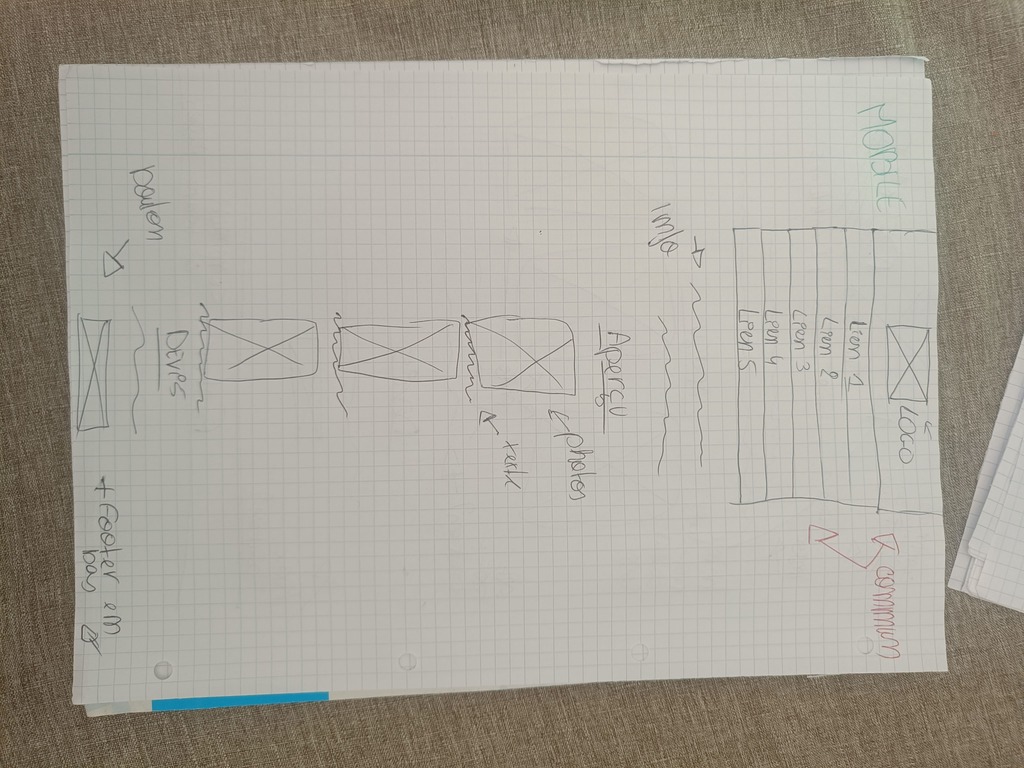 MOBILE
LOGO
commun
Lien 1
Lien 2
Lien 3
Lien 4
Lien 5
info
Aperçu
photos
texte
Devis
bouton
+ Footer en
bas